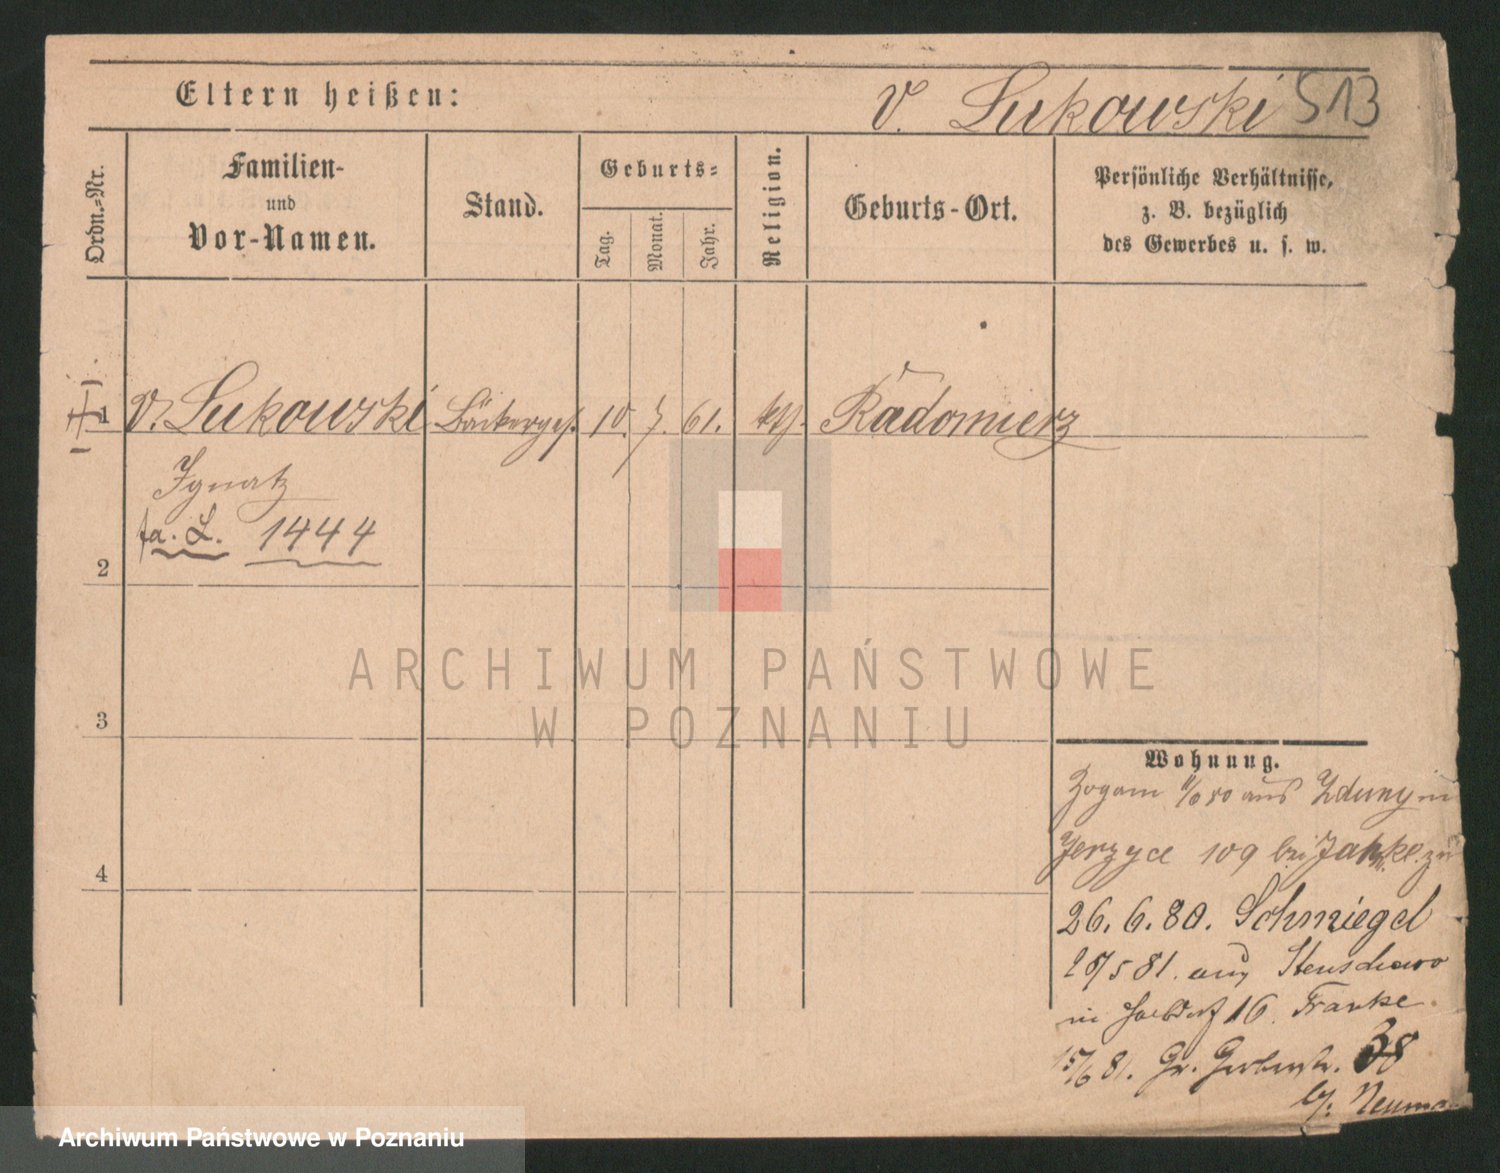 Eltern heißen:
v. Lukowski 513
Ordn.-Nr.
Familien-
und
Vor-Namen.
Stand.
Geburts-
Tag.
Monat.
Jahr.
Religion.
Geburts-Ort.
Persönliche Verhältnisse,
z. B. bezüglich
des Gewerbes u. s. w.
1 v. Lukowski Bäckerges. 10. 7. 61. kth. Radomierz
Ignatz
fa. L. 1444
2
3
4
ARCHIWUM PAŃSTWOWE
W POZNANIU
Wohnung.
Zogam 80 aus Zduny in
Jerzyce 109 bei zu
26. 6. 80. Schmiegel
28/5 81. aus Stenschewo
in 16 Franke
15/6 81. Gr. Gerberstr. 38
b/. Neuma
Archiwum Państwowe w Poznaniu